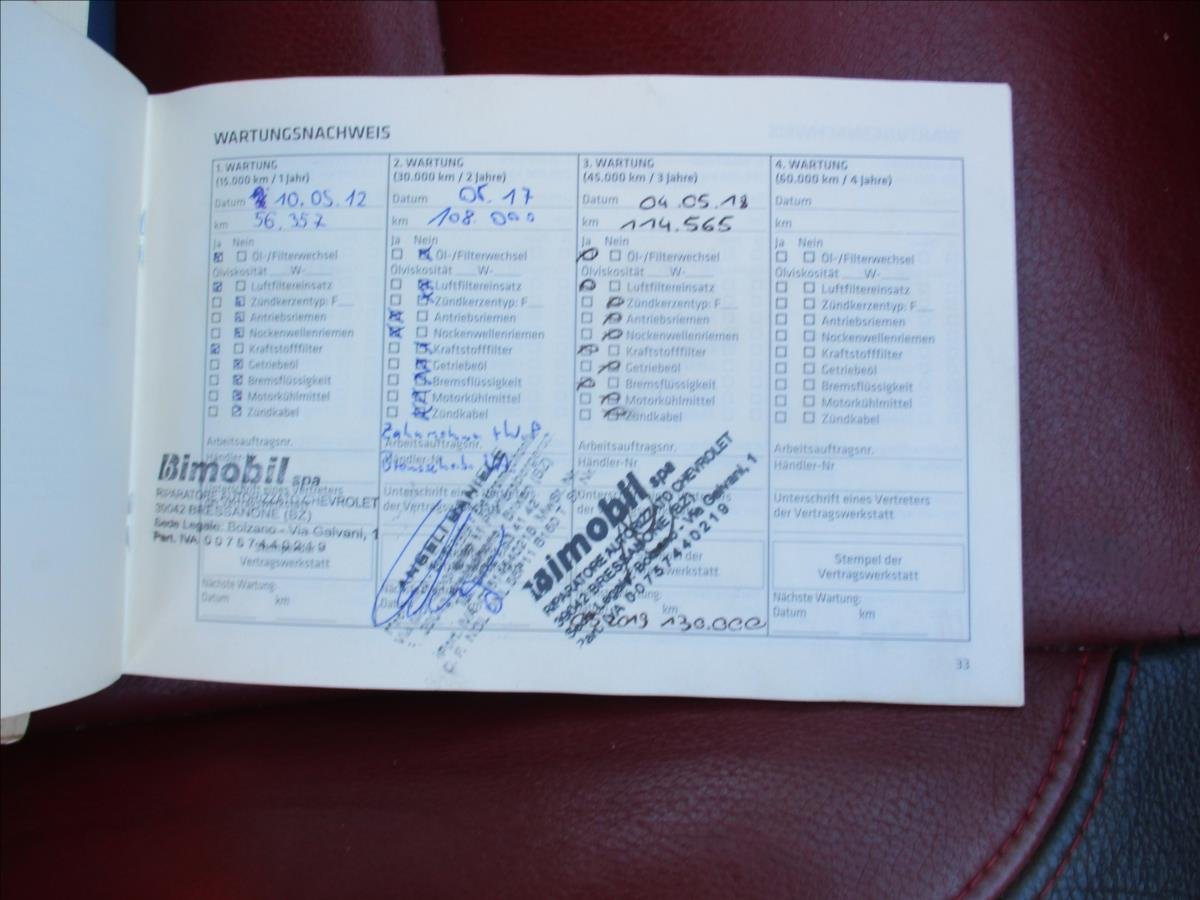 WARTUNGSNACHWEIS
1. WARTUNG
(15.000 km / 1 Jahr)
Datum 10.05.12
km 56.357
Ja Nein
Öl-/Filterwechsel
Ölviskosität ___W-____
Luftfiltereinsatz
Zündkerzentyp: F__
Antriebsriemen
Nockenwellenriemen
Kraftstofffilter
Getriebeöl
Bremsflüssigkeit
Motorkühlmittel
Zündkabel
Arbeitsauftragsnr.
Bimobil spa
RIPARATORE AUTORIZZATO CHEVROLET
39042 BRESSANONE (BZ)
Sede Legale: Bolzano - Via Galvani, 1
Part. IVA 00757440219
Vertragswerkstatt
Nächste Wartung:
Datum km
2. WARTUNG
(30.000 km / 2 Jahre)
Datum 05.17
km 108.000
Ja Nein
Öl-/Filterwechsel
Ölviskosität ___W-____
Luftfiltereinsatz
Zündkerzentyp: F__
Antriebsriemen
Nockenwellenriemen
Kraftstofffilter
Getriebeöl
Bremsflüssigkeit
Motorkühlmittel
Zündkabel
Arbeitsauftragsnr.
Unterschrift eines
der Vertragswerkstatt
3. WARTUNG
(45.000 km / 3 Jahre)
Datum 04.05.18
km 114.565
Ja Nein
Öl-/Filterwechsel
Ölviskosität ___W-____
Luftfiltereinsatz
Zündkerzentyp: F__
Antriebsriemen
Nockenwellenriemen
Kraftstofffilter
Getriebeöl
Bremsflüssigkeit
Motorkühlmittel
Zündkabel
Arbeitsauftragsnr.
Händler-Nr
Bimobil spa
RIPARATORE AUTORIZZATO CHEVROLET
39042 BRESSANONE (BZ)
Sede Legale: Bolzano - Via Galvani, 1
Part. IVA 00757440219
km
2019 130.000
4. WARTUNG
(60.000 km / 4 Jahre)
Datum
km
Ja Nein
Öl-/Filterwechsel
Ölviskosität ___W-____
Luftfiltereinsatz
Zündkerzentyp: F__
Antriebsriemen
Nockenwellenriemen
Kraftstofffilter
Getriebeöl
Bremsflüssigkeit
Motorkühlmittel
Zündkabel
Arbeitsauftragsnr.
Händler-Nr
Unterschrift eines Vertreters
der Vertragswerkstatt
Stempel der
Vertragswerkstatt
Nächste Wartung:
Datum km
33